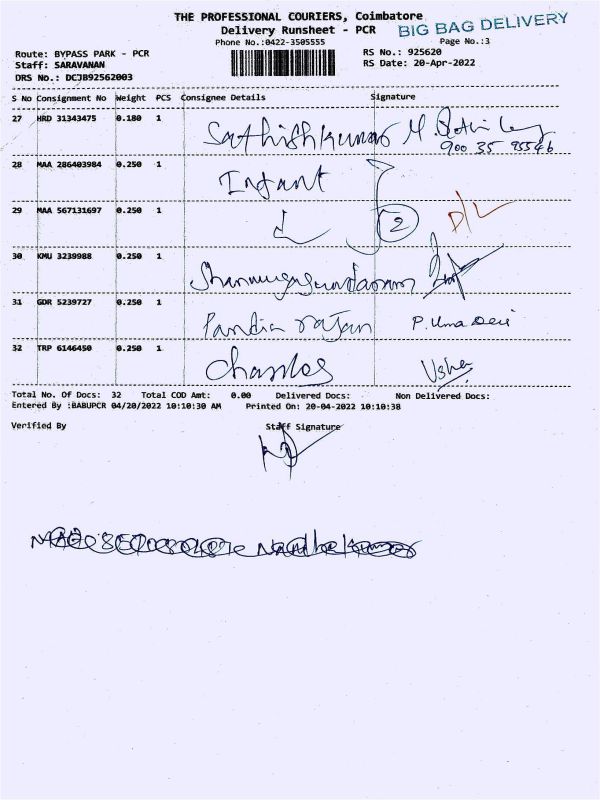 THE PROFESSIONAL COURIERS, Coimbatore
Delivery Runsheet - PCR
BIG BAG DELIVERY
Phone No.:0422-3505555
Page No.:3
Route: BYPASS PARK - PCR
RS No.: 925620
Staff: SARAVANAN
RS Date: 20-Apr-2022
DRS No.: DCJB92562003
S No Consignment No Weight PCS Consignee Details Signature
27 HRD 31343475 0.180 1 Sathishkumar M.
28 MAA 286403984 0.250 1 Infant
29 MAA 567131697 0.250 1 2 D/L
30 KMU 3239988 0.250 1 Shanmugasundaram
31 GDR 5239727 0.250 1 Pandia rajan P. Uma Devi
32 TRP 6146450 0.250 1 Usha
Total No. Of Docs: 32 Total COD Amt: 0.00 Delivered Docs: Non Delivered Docs:
Entered By :BABUPCR 04/20/2022 10:10:30 AM Printed On: 20-04-2022 10:10:38
Verified By Staff Signature